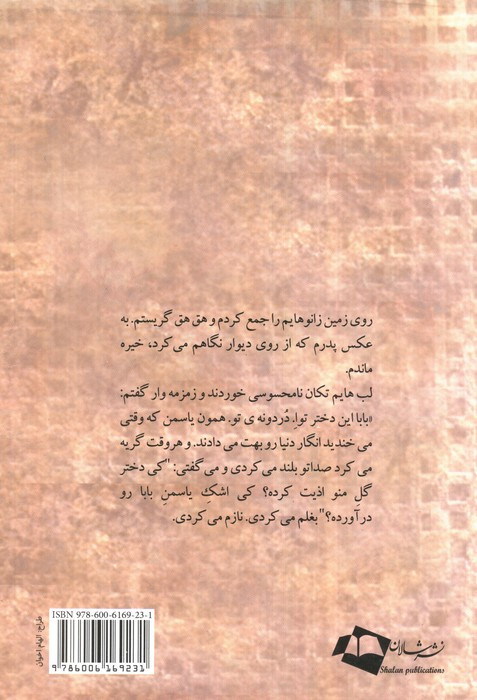 روی زمین زانوهایم را جمع کردم و هق هق گریستم. به
عکس پدرم که از روی دیوار نگاهم می‌کرد، خیره
ماندم.
لب هایم تکان نامحسوسی خوردند و زمزمه وار گفتم:
«بابا این دختر تواِ. دُردونه ی تو. همون یاسمن که وقتی
می خندید انگار دنیا رو بهت می دادند. و هروقت گریه
می کرد صداتو بلند می کردی و می‌گفتی: "کی دختر
گل منو اذیت کرده؟ کی اشکِ یاسمنِ بابا رو
درآورده؟" بغلم می‌کردی. نازم می‌کردی.
ISBN 978-600-6169-23-1
9786006169231
طراح: الهام اخوان
نشر شالان
Shalan publications